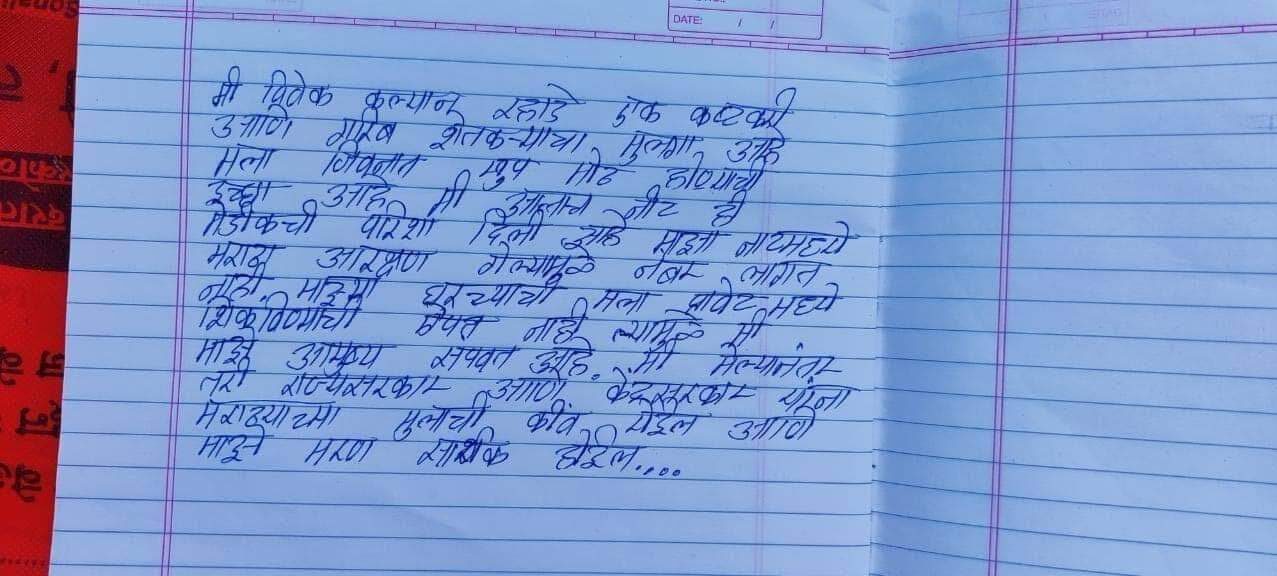 DATE: / /
मी विवेक कल्यान रहाडे एक कष्टकरी
आणि गरिब शेतकऱ्याचा मुलगा आहे
मला जिवनात खुप मोठ होण्याची
इच्छा आहे मी आत्ताच नीट ही
मेडीकची परिक्षा दिली आहे माझा नीटमध्ये
मराठा आरक्षण गेल्यामुळे नंबर लागत
नाही. माझ्या घरच्याची मला प्रायेट मध्ये
शिकविण्याची ऐपत नाही त्यामुळे मी
माझे आयुष्य संपवत आहे. मी मेल्यानंतर
तरी राज्यसरकार आणि केंद्रसरकार यांना
मराठ्याच्या मुलाची कीव येईल आणि
माझे मरण सार्थक होईल....